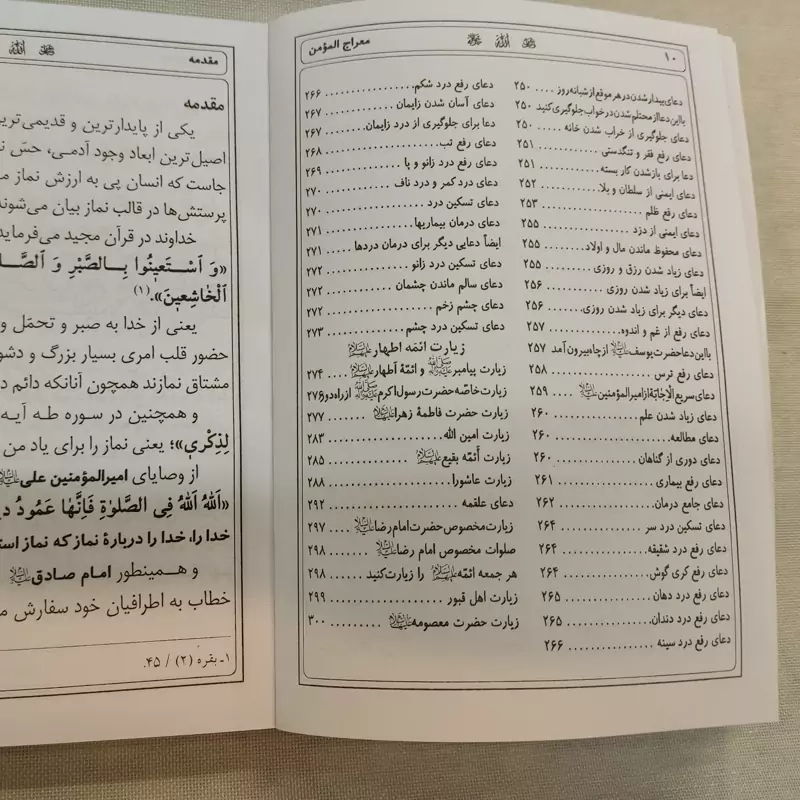 ۱۰
معراج المؤمن
دعای بیدار شدن در هر موقع از شبانه روز .... ۲۵۰
با این دعا از محتلم شدن در خواب جلوگیری کنید ۲۵۰
دعای جلوگیری از خراب شدن خانه ..... ۲۵۰
دعای رفع فقر و تنگدستی ............ ۲۵۱
دعا برای بازشدن کار بسته ............ ۲۵۱
دعای ایمنی از سلطان و بلا ........... ۲۵۲
دعای رفع ظلم ............ ۲۵۳
دعای ایمنی از دزد ............ ۲۵۵
دعای محفوظ ماندن مال و اولاد ........ ۲۵۵
دعای زیاد شدن رزق و روزی ........... ۲۵۵
ایضاً برای زیاد شدن روزی ............ ۲۵۶
دعای دیگر برای زیاد شدن روزی ....... ۲۵۶
دعای رفع از غم و اندوه ............ ۲۵۷
با این دعا حضرت یوسف علیه‌السلام از چاه بیرون آمد ۲۵۷
دعای رفع ترس ............ ۲۵۸
دعای سریع الإجابة از امیرالمؤمنین علیه‌السلام .... ۲۵۹
دعای زیاد شدن علم ............ ۲۶۰
دعای مطالعه ............ ۲۶۰
دعای دوری از گناهان ............ ۲۶۰
دعای رفع بیماری ............ ۲۶۱
دعای جامع درمان ............ ۲۶۲
دعای تسکین درد سر ............ ۲۶۴
دعای رفع درد شقیقه ............ ۲۶۴
دعای رفع کری گوش ............ ۲۶۴
دعای رفع درد دهان ............ ۲۶۵
دعای رفع درد دندان ............ ۲۶۵
دعای رفع درد سینه ............ ۲۶۶
دعای رفع درد شکم ............ ۲۶۶
دعای آسان شدن زایمان ............ ۲۶۷
دعا برای جلوگیری از درد زایمان ....... ۲۶۷
دعای رفع تب ............ ۲۶۸
دعای رفع درد زانو و پا ............ ۲۶۹
دعای درد کمر و درد ناف ............ ۲۷۰
دعای تسکین درد ............ ۲۷۰
دعای درمان بیماریها ............ ۲۷۱
ایضاً دعایی دیگر برای درمان دردها .... ۲۷۱
دعای تسکین درد زانو ............ ۲۷۲
دعای سالم ماندن چشمان ............ ۲۷۲
دعای چشم زخم ............ ۲۷۲
دعای تسکین درد چشم ............ ۲۷۳
زیارت ائمه اطهار علیهم‌السلام
زیارت پیامبر صلی‌الله‌علیه‌وآله و ائمهٔ اطهار علیهم‌السلام .... ۲۷۴
زیارت خاصّه حضرت رسول اکرم صلی‌الله‌علیه‌وآله از راه دور ۲۷۶
زیارت حضرت فاطمهٔ زهرا علیهاالسلام ....... ۲۷۷
زیارت امین الله ............ ۲۸۳
زیارت أئمّه بقیع علیهم‌السلام ............ ۲۸۵
زیارت عاشورا ............ ۲۸۸
دعای علقمه ............ ۲۹۲
زیارت مخصوص حضرت امام رضا علیه‌السلام ... ۲۹۷
صلوات مخصوص امام رضا علیه‌السلام ....... ۲۹۸
هر جمعه ائمّه علیهم‌السلام را زیارت کنید ....... ۲۹۸
زیارت اهل قبور ............ ۲۹۹
زیارت حضرت معصومه علیهاالسلام ......... ۳۰۰
مقدمه
مقدمه
یکی از پایدارترین و قدیمی‌ترین
اصیل‌ترین ابعاد وجود آدمی، حسّ
جاست که انسان پی به ارزش نماز
پرستش‌ها در قالب نماز بیان می‌شوند
خداوند در قرآن مجید می‌فرماید
«وَ اسْتَعِینُوا بِالصَّبْرِ وَ الصَّلـ
الْخَاشِعِینَ».(۱)
یعنی از خدا به صبر و تحمّل و
حضور قلب امری بسیار بزرگ و
مشتاق نمازند همچون آنانکه دائم
و همچنین در سوره طه آیه
لِذِکْرِی»؛ یعنی نماز را برای یاد من
از وصایای امیرالمؤمنین علی علیه‌السلام
«اَللهُ اَللهُ فِی الصَّلوٰةِ فَاِنَّهٰا عَمُودُ
خدا را، خدا را دربارهٔ نماز که نماز
و همینطور امام صادق علیه‌السلام
خطاب به اطرافیان خود سفارش
۱ـ بقره (۲) / ۴۵.